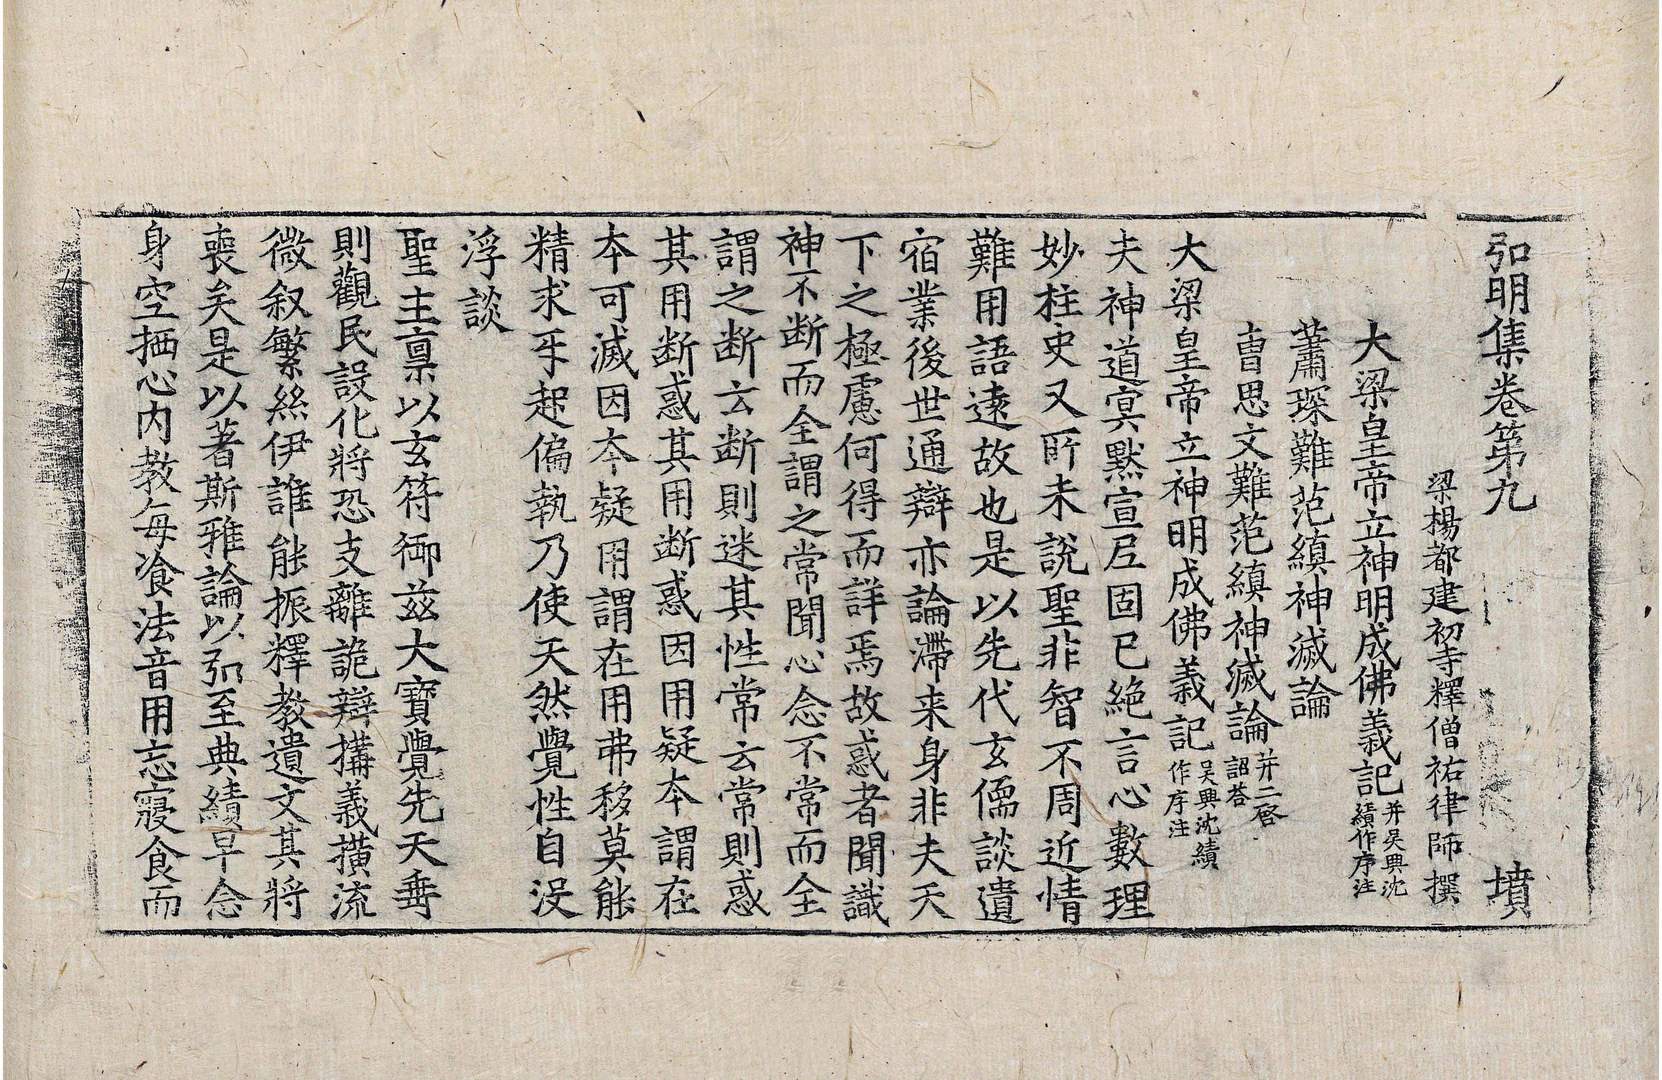 弘明集卷第九 墳
梁楊都建初寺釋僧祐律師撰
大梁皇帝立神明成佛義記并吳興沈績作序注
蕭琛難范縝神滅論
曺思文難范縝神滅論并二啓詔荅
大梁皇帝立神明成佛義記吳興沈績作序注
夫神道冥默宣尼固已絶言心數理
妙柱史又所未說聖非智不周近情
難用語遠故也是以先代玄儒談遺
宿業後世通辯亦論滯来身非夫天
下之極慮何得而詳焉故惑者聞識
神不断而全謂之常聞心念不常而全
謂之断云断則迷其性常云常則惑
其用断惑其用断惑因用疑本謂在
本可滅因本疑用謂在用弗移莫能
精求乎起偏執乃使天然覺性自没
浮談
聖主禀以玄符御兹大寶覺先天垂
則觀民設化將恐支離詭辯搆義橫流
微叙繁絲伊誰能振釋教遺文其將
喪矣是以著斯雅論以弘至典績早念
身空栖心内教每飡法音用忘寢食而